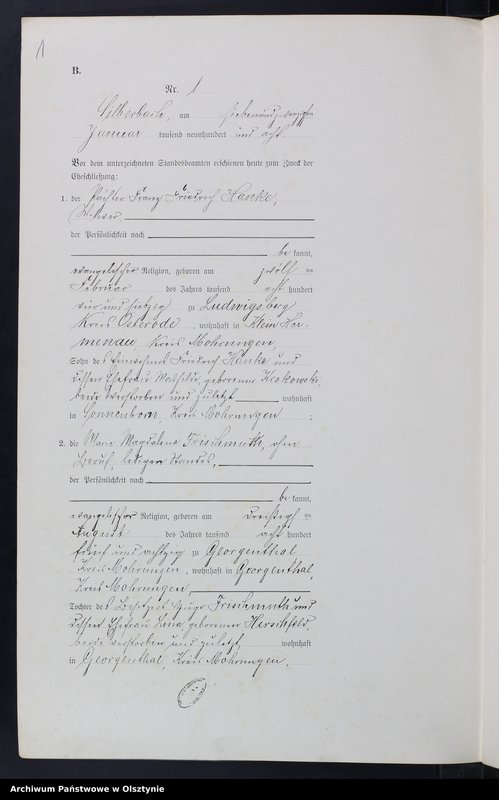 1
B.
Nr. 1
Silberbach, am siebenundzwanzigsten
Januar tausend neunhundert und acht.
Vor dem unterzeichneten Standesbeamten erschienen heute zum Zweck der
Eheschließung:
1. der Pächter Franz Friedrich Hanke,
Witwer
der Persönlichkeit nach
be kannt,
evangelischer Religion, geboren am zwölften
Februar des Jahres tausend acht hundert
vier und siebzig zu Ludwigsberg
Kreis Osterode, wohnhaft in Klein Her-
menau Kreis Mohrungen,
Sohn des Einwohners Friedrich Hanke und
dessen Ehefrau geborenen Krokowski,
beide verstorben und zuletzt wohnhaft
in Sonnenborn, Kreis Mohrungen ;
2. die Marie Magdalene Frischmuth, ohne
Beruf, ledigen Standes,
der Persönlichkeit nach
be kannt,
evangelischer Religion, geboren am dreißigsten
August des Jahres tausend acht hundert
fünf und achtzig zu Georgenthal
Kreis Mohrungen, wohnhaft in Georgenthal,
Kreis Mohrungen,
Tochter des Besitzers Frischmuth und
dessen Ehefrau geborenen Hirschfeld,
beide verstorben und zuletzt wohnhaft
in Georgenthal, Kreis Mohrungen.
Archiwum Państwowe w Olsztynie